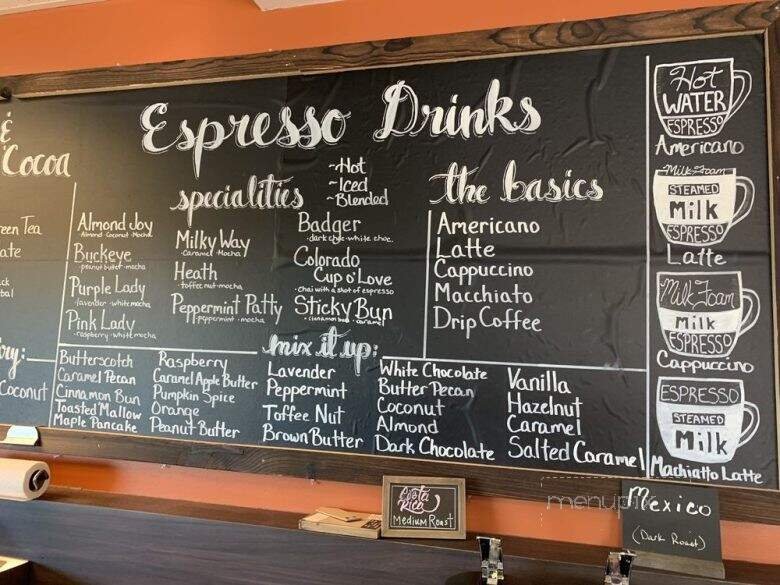 &
Cocoa
een Tea
ate
ck
bal
ry:
Coconut
Espresso Drinks
specialities
~Hot
~Iced
~Blended
Almond Joy
Almond·Coconut·Mocha
Buckeye
peanut butter·mocha
Purple Lady
lavender·white mocha
Pink Lady
raspberry·white mocha
Milky Way
Caramel·Mocha
Heath
toffee nut·mocha
Peppermint Patty
peppermint·mocha
Badger
dark choc·white choc.
Colorado
Cup o' Love
·chai with a shot of espresso
Sticky Bun
·cinnamon bun·caramel
the basics
Americano
Latte
Cappuccino
Macchiato
Drip Coffee
mix it up:
Butterscotch
Caramel Pecan
Cinnamon Bun
Toasted Mallow
Maple Pancake
Raspberry
Caramel Apple Butter
Pumpkin Spice
Orange
Peanut Butter
Lavender
Peppermint
Toffee Nut
Brown Butter
White Chocolate
Butter Pecan
Coconut
Almond
Dark Chocolate
Vanilla
Hazelnut
Caramel
Salted Caramel
Hot
WATER
ESPRESSO
Americano
Milk Foam
STEAMED
Milk
ESPRESSO
Latte
Milk Foam
Milk
ESPRESSO
Cappuccino
ESPRESSO
STEAMED
Milk
Machiatto Latte
Costa
Rica
Medium Roast
Mexico
(Dark Roast)
menupix